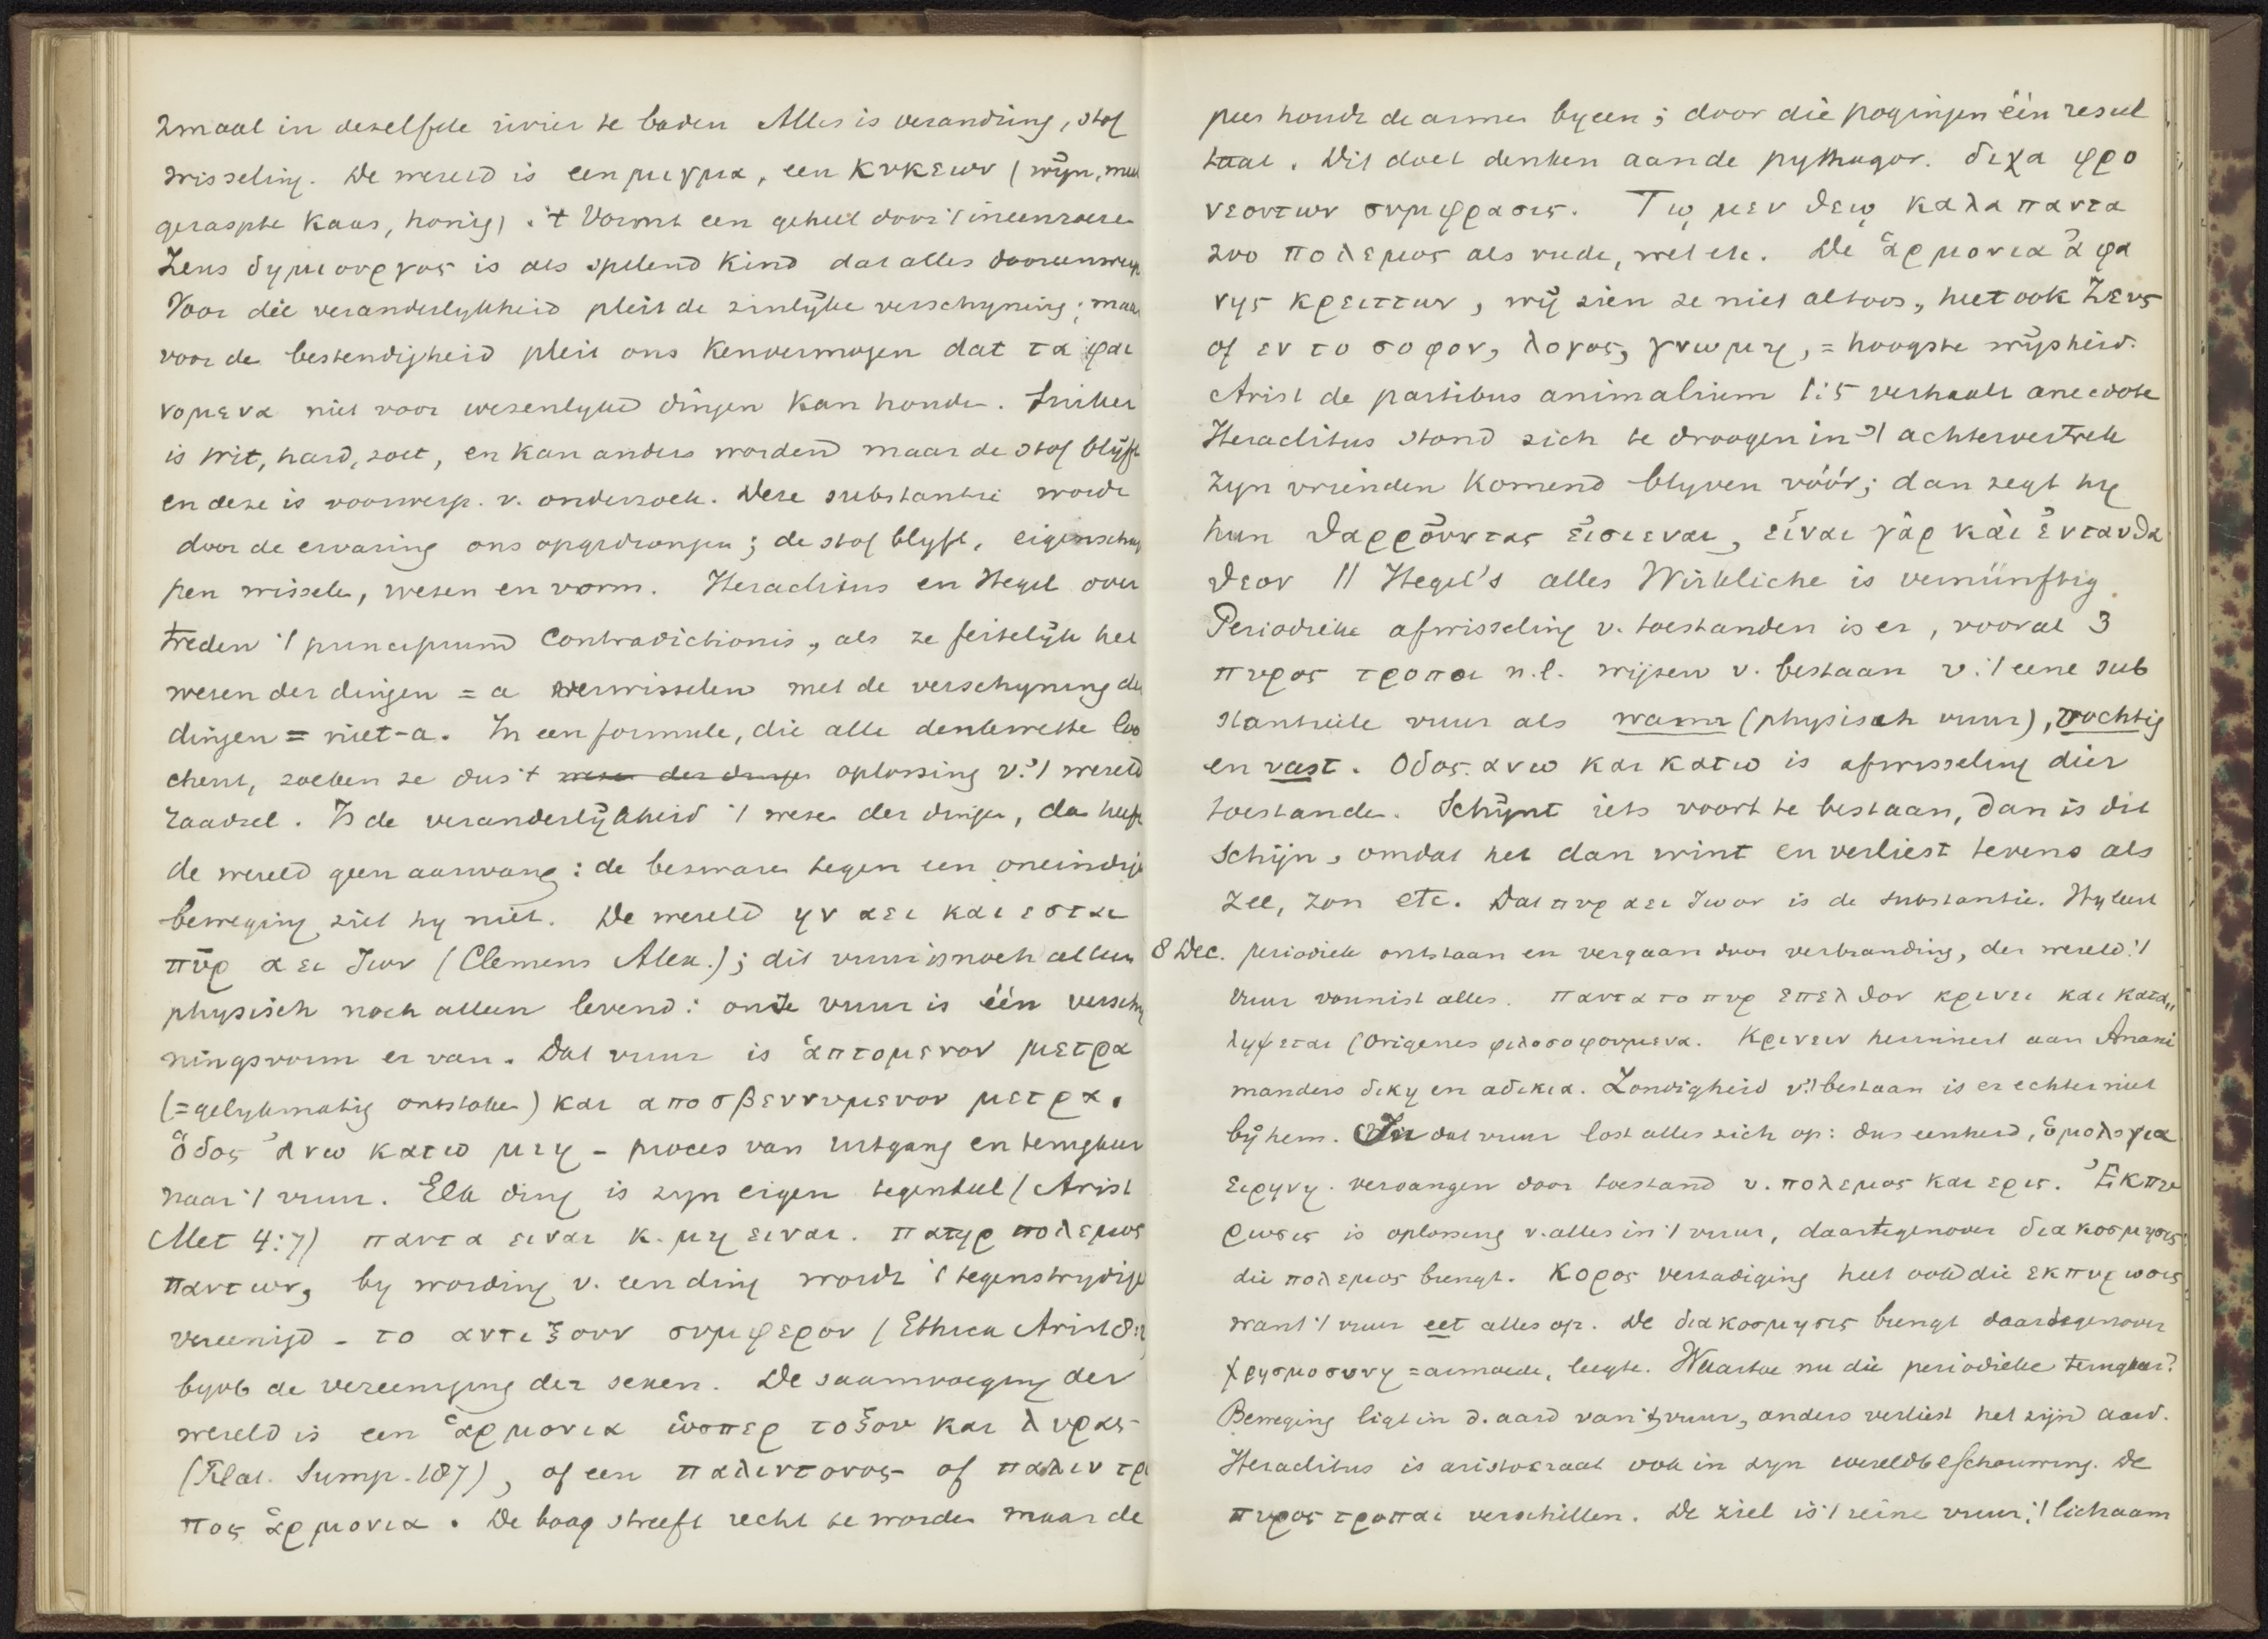 2maal in dezelfde rivier te baden Alles is verandring, stof
wisseling. De wereld is een μιγμα, een κυκεων (wijn, meel
geraspte kaas, honig). 't Vormt een geheel door 't ineenroeren
Zeus δημιουργος is als spelend kind dat alles dooreenwerpt
Voor die veranderlykheid pleit de zinlijke verschyning; maar
voor de bestendigheid pleit ons kenvermogen dat τα φαι
νομενα niet voor wezenlyke dingen kan houden. Suiker
is wit, hard, zoet, en kan anders worden maar de stof blijft
en deze is voorwerp. v. onderzoek. Deze substantie wordt
door de ervaring ons opgedrongen; de stof blyft, eigenschap
pen wisselen, wezen en vorm. Heraclitus en Hegel over
treden 't principium Contradictionis, als ze feitelijk het
wezen der dingen = a verwisselen met de verschyning der
dingen = niet-a. In een formule, die alle denkwetten loo
chent, zoeken ze dus 't wezen der dingen oplossing v. 't wereld
raadsel. Is de veranderlijkheid 't wezen der dingen, dan heeft
de wereld geen aanvang: de bezwaren tegen een oneindige
beweging ziet hy niet. De wereld ην αει και εσται
πῦρ αει ζωον (Clemens Alex.); dit vuur is noch alleen
physisch noch alleen levend: onze vuur is één verschy
ningsvorm er van. Dat vuur is ἁπτομενον μετρα
(=gelykmatig ontstoken) και αποσβεννυμενον μετρα.
ὅδος ἀνω κατω μιη - proces van uitgang en terugkeer
naar 't vuur. Elk ding is zyn eigen tegendeel (Arist
Met 4:7) παντα ειναι κ. μη ειναι. πατηρ πολεμος
παντων, by wording v. een ding wordt 't tegenstrydige
vereenigd - το αντιξουν συμφερον (Ethica Arist 8:2
byvb de vereeniging der sexen. De saamvoeging der
wereld is een ἁρμονια ὡσπερ τοξου και λυρας
(Plat. Symp. 187), of een παλιντονος of παλιντρο
πος ἁρμονια. De boog streeft recht te worden maar de
pees houdt de armen byeen; door die pogingen één resul
taat. Dit doet denken aan de pythagor. διχα φρο
νεοντων συμφρασις. Τῳ μεν θεῳ καλα παντα
zoo πολεμος als vrede, wel etc. De ἁρμονια ἀφα
νης κρειττων, wij zien ze niet altoos, heet ook Ζευς
of εν το σοφον, λογος, γνωμη, = hoogste wijsheid.
Arist de partibus animalium 1:5 verhaalt anecdote
Heraclitus stond zich te droogen in 't achtervertrek
zyn vrienden komend blyven vóór; dan zegt hy
hun θαρροῦντας εἰσιεναι, εἶναι γὰρ καὶ ἐνταυθα
θεον || Hegel's alles Wirkliche is vernünftig.
Periodieke afwisseling v. toestanden is er, vooral 3
πυρος τροπαι n.l. wijzen v. bestaan v. 't eene sub
stantieele vuur als warm (physisch vuur), vochtig
en vast. Οδος ανω και κατω is afwisseling dier
toestanden. Schijnt iets voort te bestaan, dan is dit
schijn, omdat het dan wint en verliest tevens als
zee, zon etc. Dat πυρ αει ζωον is de substantie. Hy leert
8 Dec. periodiek ontstaan en vergaan door verbranding, der wereld. 't
vuur vonnist alles. παντα το πυρ επελθον κρινει και κατα„
ληψεται (Origenes φιλοσοφουμενα. Κρινειν herinnert aan Anaxi
manders δικη en αδικια. Zondigheid v. 't bestaan is er echter niet
bij hem. In dat vuur lost alles zich op: dus eenheid, ὁμολογια
ειρηνη. vervangen door toestand v. πολεμος και ερις. Ἐκπυ
ρωσις is oplossing v. alles in 't vuur, daartegenover διακοσμησις
die πολεμος brengt. Κορος verzadiging heet ook die εκπυρωσις
want 't vuur eet alles op. De διακοσμησις brengt daartegenover
χρησμοσυνη = armoede, leegte. Waartoe nu die periodieke terugkeer?
Beweging ligt in d. aard van 't vuur, anders verliest het zijn aard.
Heraclitus is aristocraat ook in zyn wereldbeschouwing. De
πυρος τροπαι verschillen. De ziel is 't reine vuur; 't lichaam